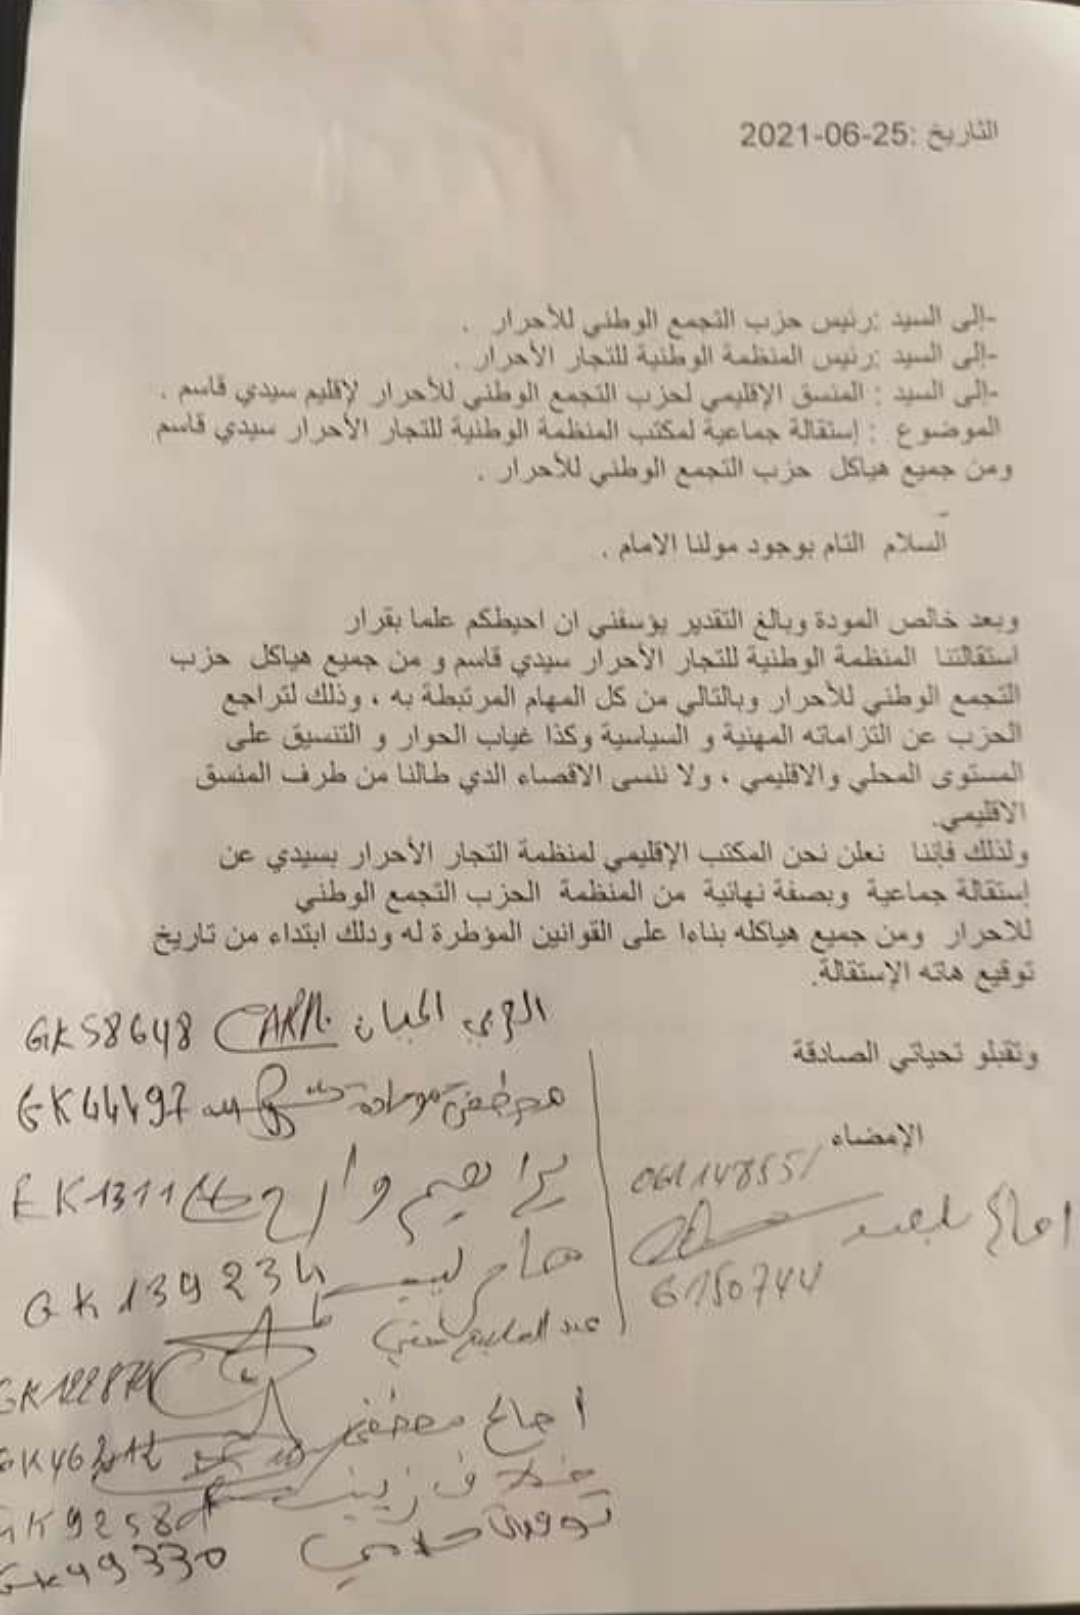 التاريخ :25-06-2021
-إلى السيد :رئيس حزب التجمع الوطني للأحرار .
-إلى السيد :رئيس المنظمة الوطنية للتجار الأحرار .
-إلى السيد : المنسق الإقليمي لحزب التجمع الوطني للأحرار لإقليم سيدي قاسم .
الموضوع : إستقالة جماعية لمكتب المنظمة الوطنية للتجار الأحرار سيدي قاسم
ومن جميع هياكل حزب التجمع الوطني للأحرار .
السلام التام بوجود مولنا الامام .
وبعد خالص المودة وبالغ التقدير يؤسفني ان احيطكم علما بقرار
استقالتنا المنظمة الوطنية للتجار الأحرار سيدي قاسم و من جميع هياكل حزب
التجمع الوطني للأحرار وبالتالي من كل المهام المرتبطة به ، وذلك لتراجع
الحزب عن التزاماته المهنية و السياسية وكذا غياب الحوار و التنسيق على
المستوى المحلي والاقليمي ، ولا ننسى الاقصاء الذي طالنا من طرف المنسق
الاقليمي.
ولذلك فإننا نعلن نحن المكتب الإقليمي لمنظمة التجار الأحرار بسيدي عن
إستقالة جماعية وبصفة نهائية من المنظمة الحزب التجمع الوطني
للاحرار ومن جميع هياكله بناءا على القوانين المؤطرة له ودلك ابتداء من تاريخ
توقيع هاته الإستقالة.
وتقبلو تحياتي الصادقة
الإمضاء
GK58648
مصطفى GK44497
GK139234
مصطفى
زينب
GK49330
G150744